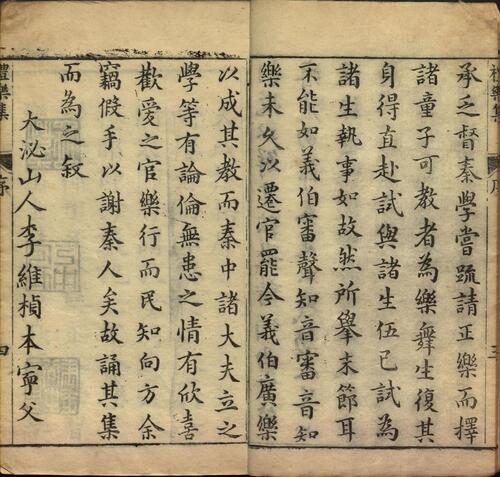 承乏督秦學嘗疏請正樂而擇
諸童子可教者為樂舞生復其
身得直赴試與諸生伍已試為
諸生執事如故然所舉末節耳
不能如義伯審聲知音審音知
樂未久以遷官罷今義伯廣樂
以成其教而秦中諸大夫立之
學等有論倫無患之情有欣喜
歡愛之官樂行而民知向方余
竊假手以謝秦人矣故誦其集
而為之敘
大泌山人李維楨本寧父
禮樂集
序
四